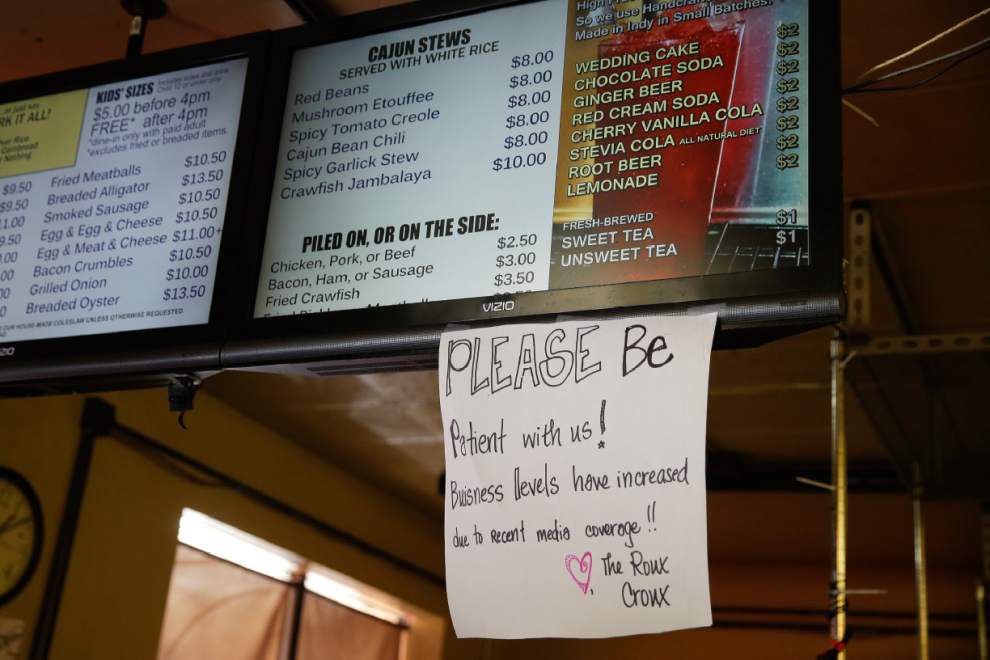 RK IT ALL!
Nothing
KIDS' SIZES
$5.00 before 4pm
FREE* after 4pm
*dine-in only with paid adult
*excludes fried or breaded items.
$9.50 Fried Meatballs $10.50
$9.50 Breaded Alligator $13.50
Smoked Sausage $10.50
Egg & Egg & Cheese $10.50
Egg & Meat & Cheese $11.00+
Bacon Crumbles $10.50
Grilled Onion $10.00
Breaded Oyster $13.50
OUR HOUSE-MADE COLESLAW UNLESS OTHERWISE REQUESTED.
CAJUN STEWS
SERVED WITH WHITE RICE
Red Beans $8.00
Mushroom Etouffee $8.00
Spicy Tomato Creole $8.00
Cajun Bean Chili $8.00
Spicy Garlick Stew $8.00
Crawfish Jambalaya $10.00
PILED ON, OR ON THE SIDE:
Chicken, Pork, or Beef $2.50
Bacon, Ham, or Sausage $3.00
Fried Crawfish $3.50
So we use Handcraf
Made in Indy in Small Batches.
WEDDING CAKE $2
CHOCOLATE SODA $2
GINGER BEER $2
RED CREAM SODA $2
CHERRY VANILLA COLA $2
STEVIA COLA ALL NATURAL DIET $2
ROOT BEER $2
LEMONADE $2
FRESH-BREWED
SWEET TEA $1
UNSWEET TEA $1
VIZIO
PLEASE Be
Patient with us!
Buisness levels have increased
due to recent media coverage!!
The Roux
Croux